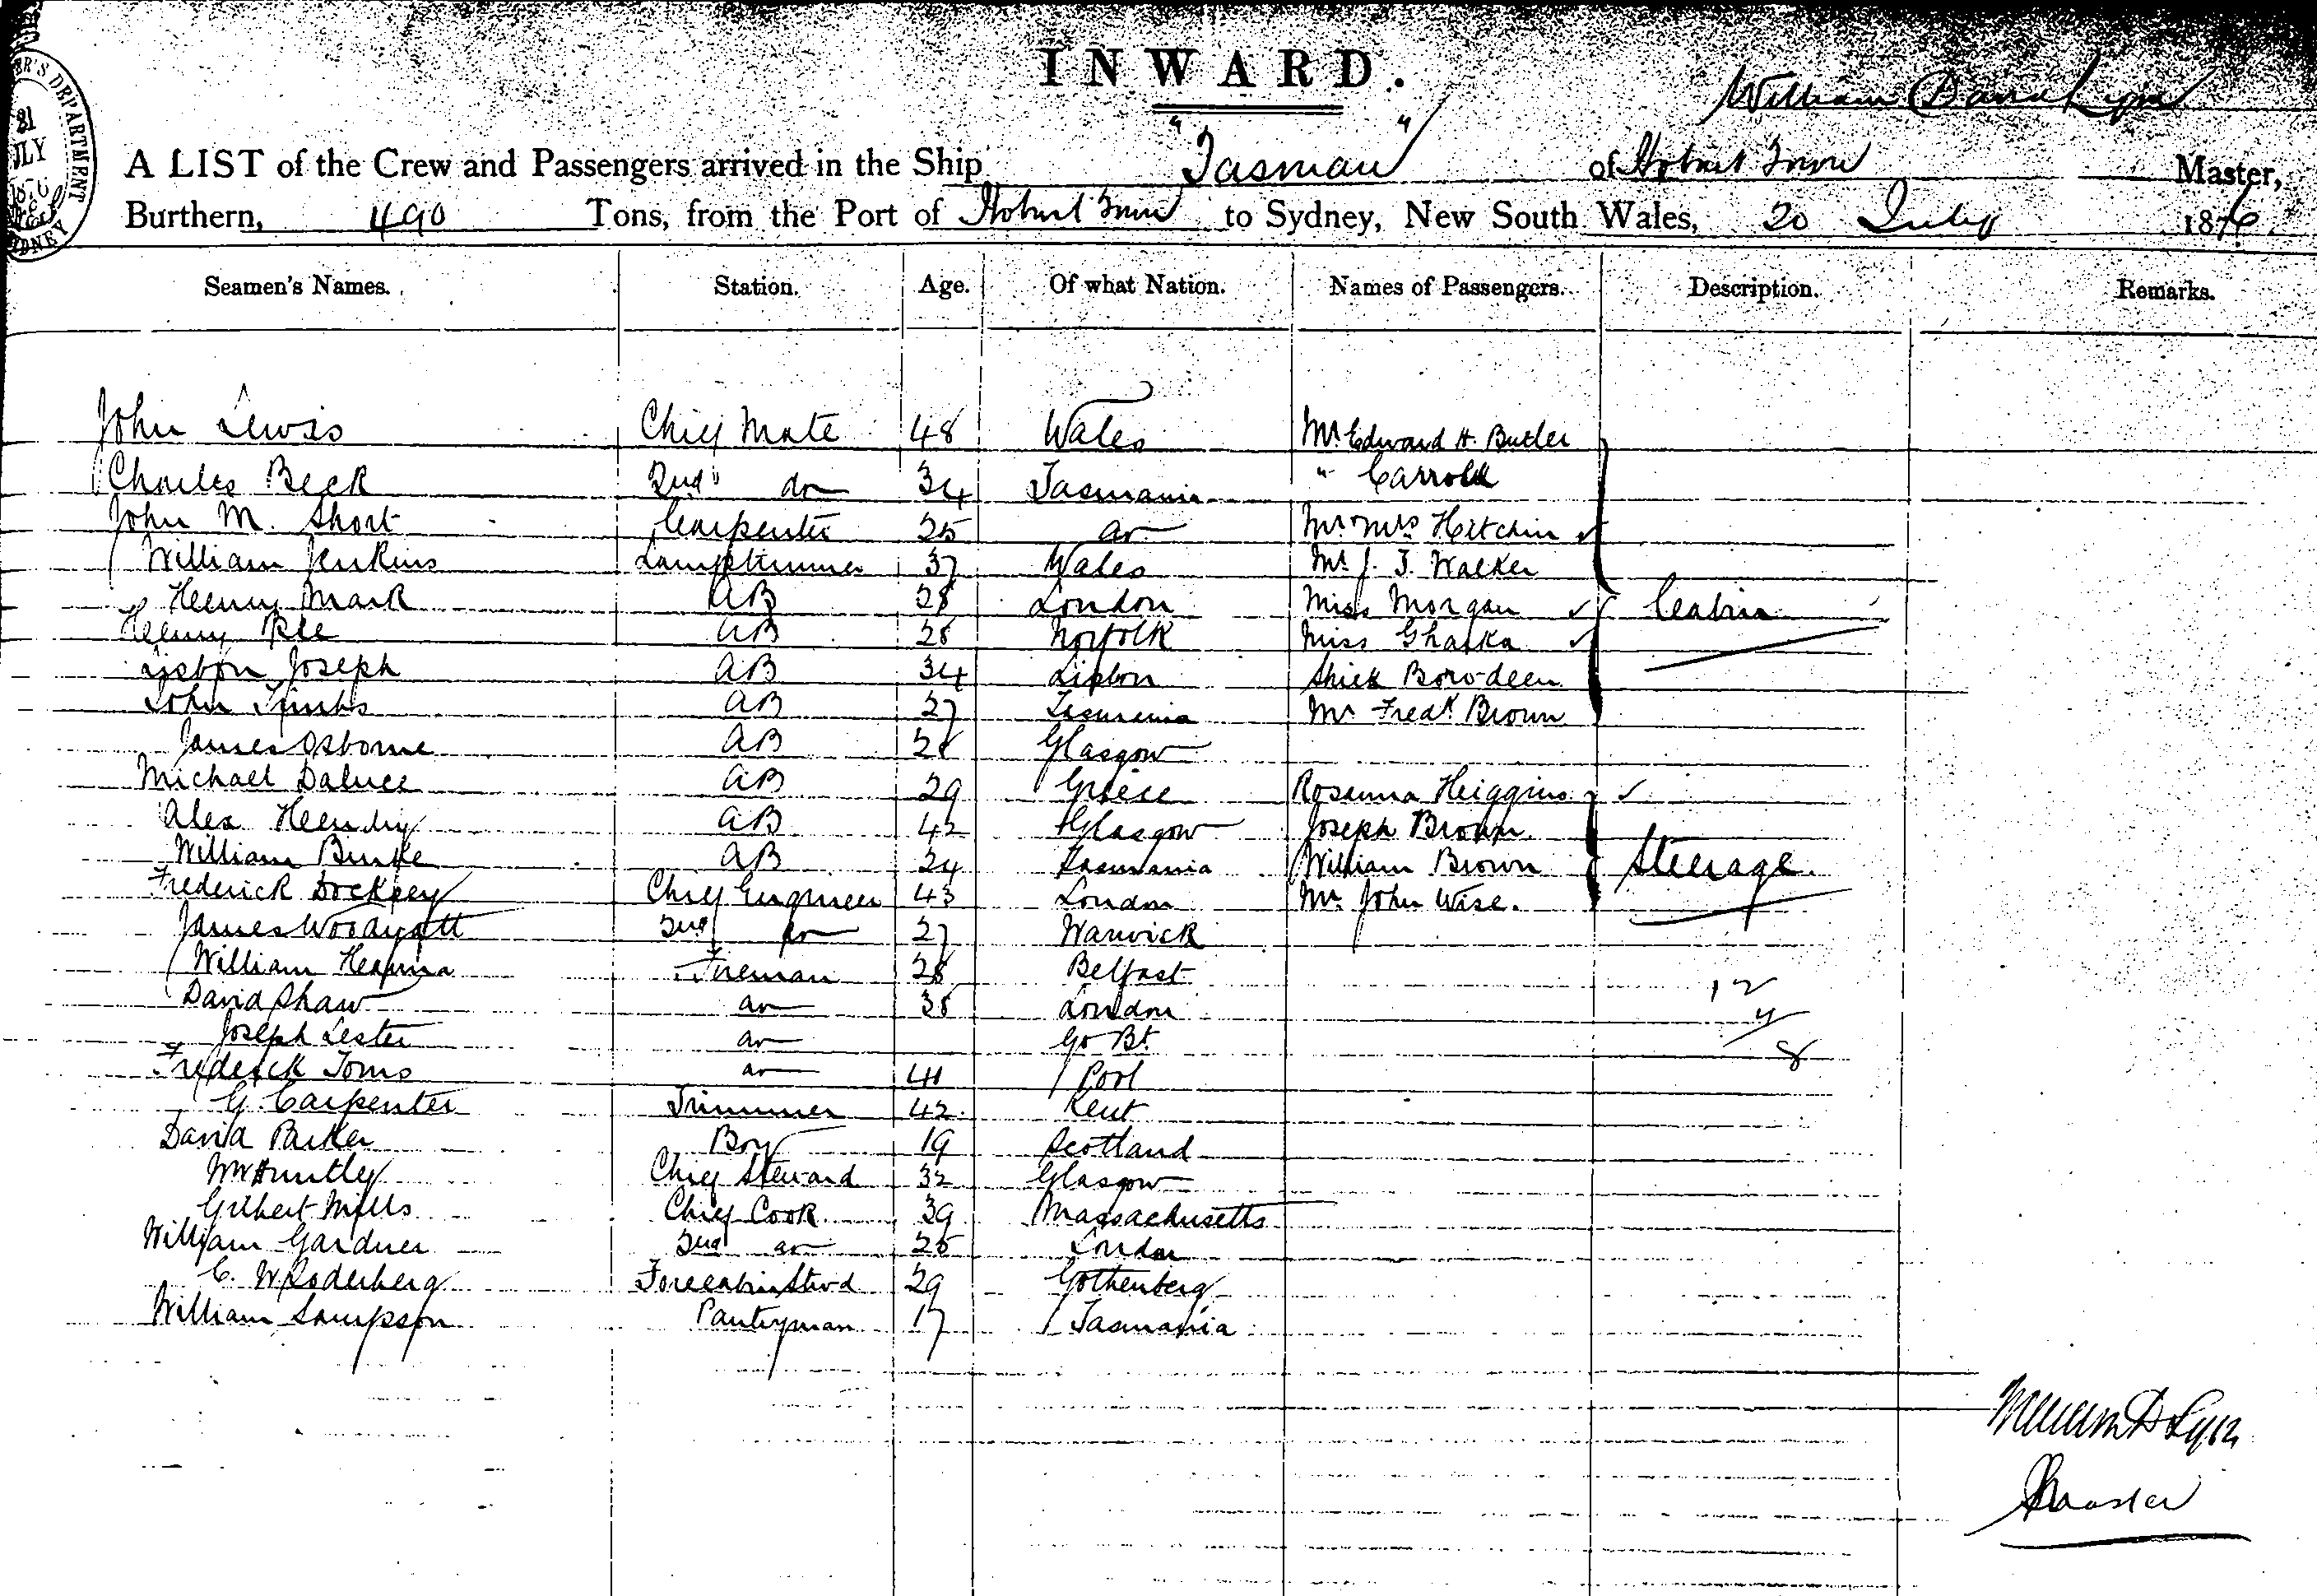 INWARD.
William David Lyon
A LIST of the Crew and Passengers arrived in the Ship "Tasman" of Hobart Town Master,
Burthern, 490 Tons, from the Port of Hobart Town to Sydney, New South Wales, 20 July 1876
21 JULY
DEPARTMENT
Seamen's Names. Station. Age. Of what Nation. Names of Passengers. Description. Remarks.
John Lewis Chief Mate 48 Wales Mr Edward H. Butler
Charles Beck 2nd do 34 Tasmania " Carroll
John M. Short Carpenter 25 do Mr Mrs Hitchin
William Jenkins Lamptrimmer 37 Wales Mr J. T. Walker
Henry Mark AB 28 London Miss Morgan Cabin
Henry AB 28 Norfolk Miss
Lisbon Joseph AB 34 Lisbon
John AB 27 Tasmania Mr Fredk Brown
James Osborne AB Glasgow
Michael AB 29 Greece Rosanna Heiggins
Alex Hendry AB 42 Glasgow Joseph Brown
William Burke AB 24 Tasmania William Brown Steerage
Frederick Chief Engineer 43 London Mr John Wise.
James Woodyatt 2nd do 27 Warwick
William Fireman 28 Belfast 12
David Shaw do 38 London 4
Joseph Lester do Go Bt. 8
Frederick Toms do 41 Pool
G. Carpenter Trimmer 42 Kent
David Parker Boy 19 Scotland
Wm Huntley Chief Steward 32 Glasgow
Gilbert Mills Chief Cook 39 Massachusetts
William Gardner 2nd do 25 London
C. W. Soderberg Forecabin Stwd 29 Gothenberg
William Sampson Pantryman 17 Tasmania
William D Lyon
Master